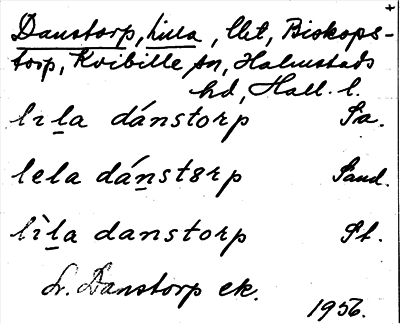 +
Danstorp, Lilla, llt, Biskops-
torp, Kvibille sn, Halmstads
hd, Hall. l.
lìḻa dánstorp Sa.
lela dáṉstɛrp Sand.
lìḻa danstorp St.
Lr. Danstorp ek.
1956.